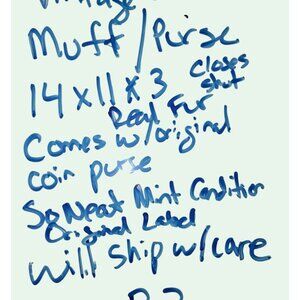 Vintage
Muff/Purse
14 x 11 x 3 Closes shut
Real Fur
Comes w/original
coin purse
So Neat Mint Condition
Original Label
Will Ship w/care